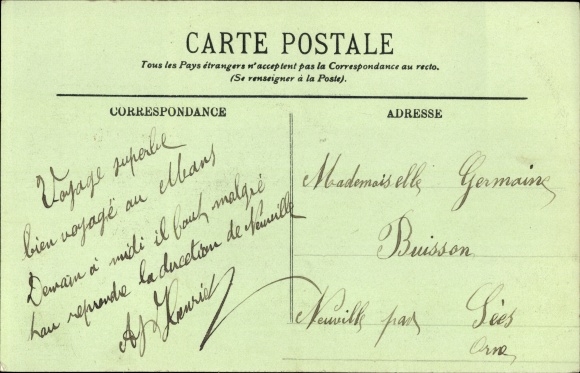 CARTE POSTALE
Tous les Pays étrangers n'acceptent pas la Correspondance au recto.
(Se renseigner à la Poste).
CORRESPONDANCE
ADRESSE
Voyage superbe
bien voyagé au Mans
Demain à midi il faut malgré
reprendre la direction de Neuville
Henriet
Mademoiselle Germaine
Buisson
Neuville par Sées
Orne